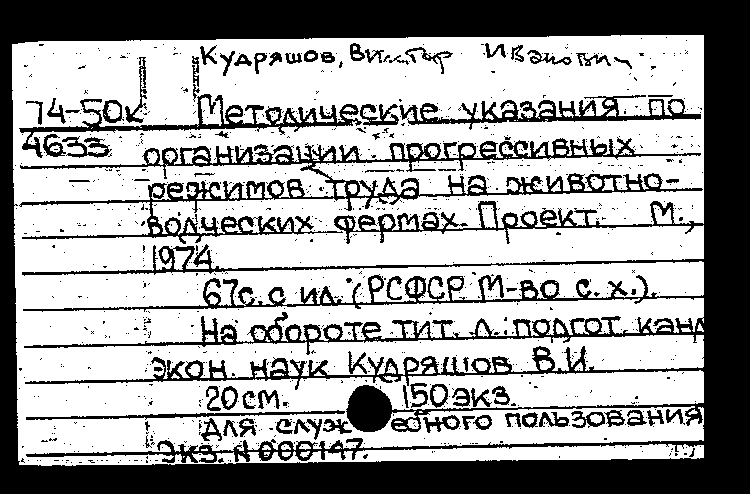 Кудряшов, Виктор Иванович.
74-50к Методические указания по
4633 организации прогрессивных
режимов труда на животно-
водческих фермах. Проект. М.,
1974.
67с. с ил. (РСФСР. М-во с. х.).
На обороте тит. л.: подгот. канд
экон. наук Кудряшов В.И.
20см. 150 экз.
Для служебного пользования
Экз. N 000147.